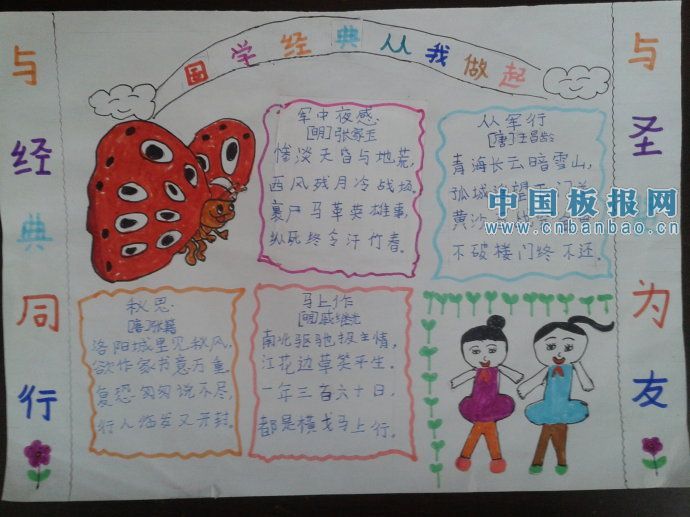 国学经典从我做起
与经典同行
军中夜感
[明]张家玉
惨淡天昏与地荒,
西风残月冷战场。
裹尸马革英雄事,
纵死终令汗竹香。
从军行
[唐]王昌龄
青海长云暗雪山,
孤城
黄沙
不破楼门终不还。
中国板报网
www.cnbanbao.cn
秋思
[唐]张籍
洛阳城里见秋风,
欲作家书意万重
复恐匆匆说不尽,
行人临发又开封。
马上作
[明]戚继光
南北驱驰报主情,
江花边草笑平生。
一年三百六十日,
都是横戈马上行。
与圣为友